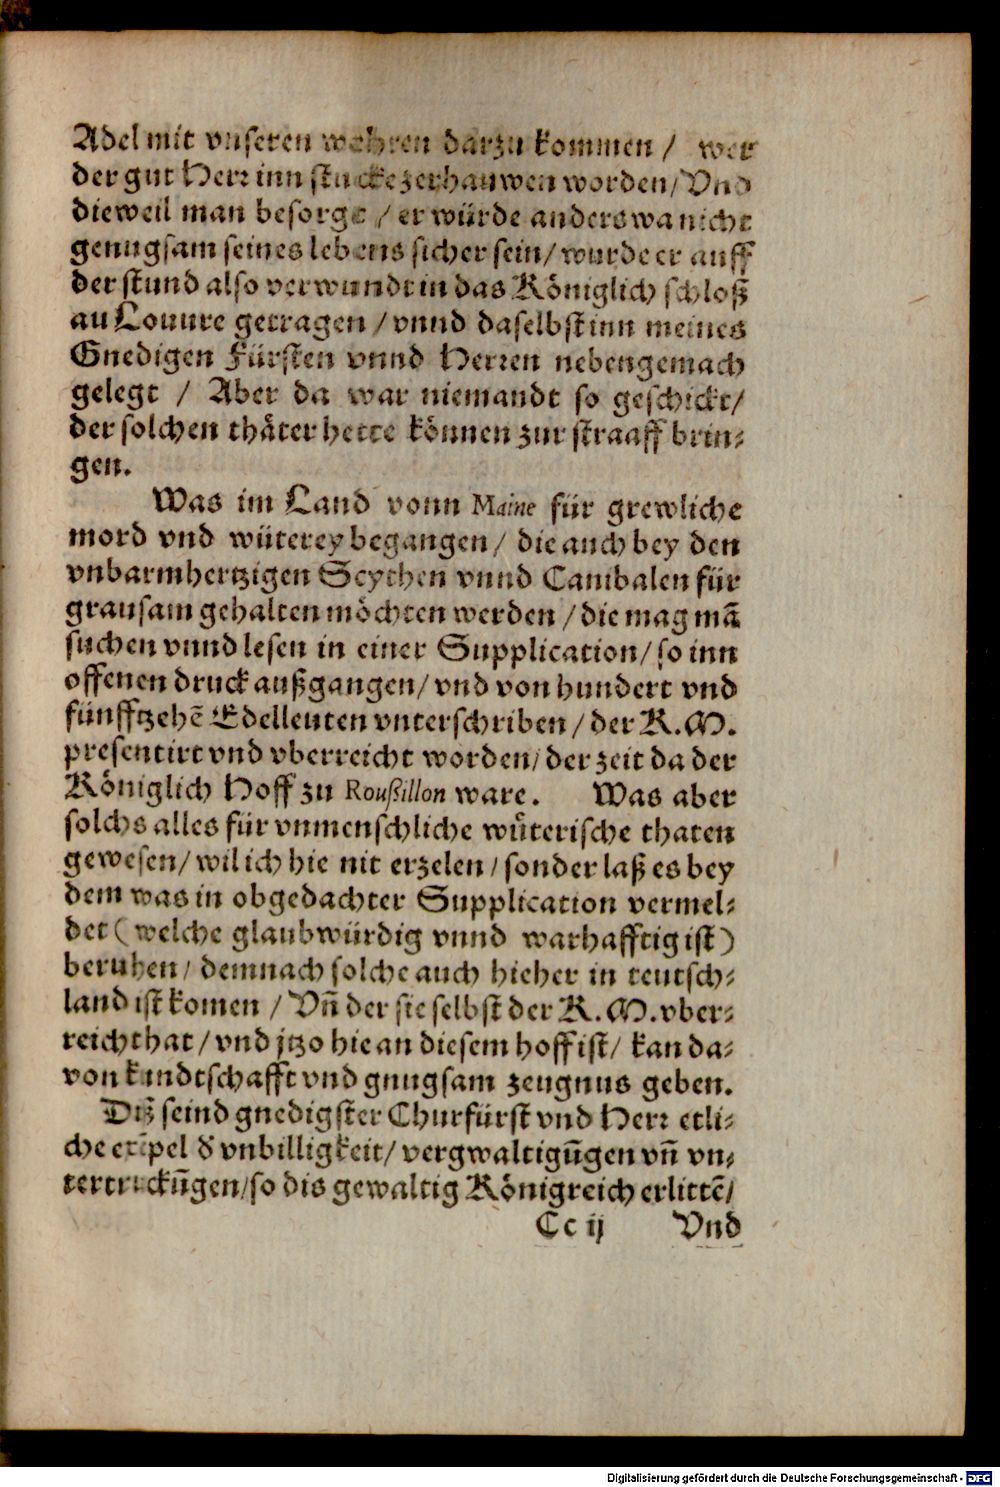 Adel mit vnseren wehren darzu kommen / wer
der gut Herr inn stucke zerhauwen worden/ Vnd
dieweil man besorge / er würde anderswa nicht
genugsam seines lebens sicher sein/ wurde er auff
der stund also verwundt in das Königlich schloß
au Louure getragen / vnnd daselbst inn meines
Gnedigen Fürsten vnnd Herren nebengemach
gelegt / Aber da war niemandt so geschickt/
der solchen thäter hette können zur straaff brin⸗
gen.
Was im Land vonn Maine für grewliche
mord vnd wüterey begangen/ die auch bey den
vnbarmhertzigen Scythen vnnd Canibalen für
grausam gehalten möchten werden / die mag mã
suchen vnnd lesen in einer Supplication/ so inn
offenen druck außgangen/ vnd von hundert vnd
fünfftzehẽ Edelleuten vnterschriben / der K. M.
presentirt vnd vberreicht worden/ der zeit da der
Königlich Hoff zu Roußillon ware. Was aber
solchs alles für vnmenschliche wüterische thaten
gewesen/ wil ich hie nit erzelen / sonder laß es bey
dem was in obgedachter Supplication vermel⸗
det ( welche glaubwürdig vnnd warhafftig ist )
beruhen / demnach solche auch hieher in teutsch⸗
land ist komen / Vñ der sie selbst der K. M. vber⸗
reicht hat / vnd jtzo hie an diesem hoff ist / kan da⸗
von kundtschafft vnd gnugsam zeugnus geben.
Diß seind gnedigster Churfürst vnd Herr etli⸗
che exẽpel d̃ vnbilligkeit/ vergwaltigũgen vñ vn⸗
tertruckũgen/ so dis gewaltig Königreich erlittẽ/
Cc ij Vnd
Digitalisierung gefördert durch die Deutsche Forschungsgemeinschaft - DFG